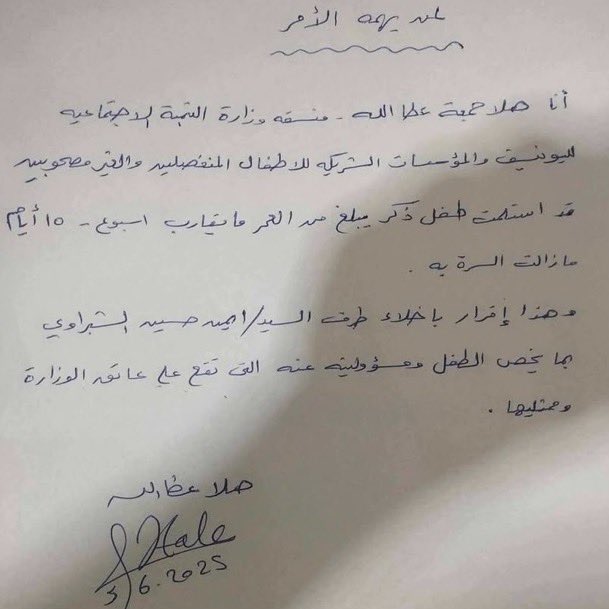 لمن يهمه الأمر
أنا هلا جمعة عطا الله - منسقه وزارة التنمية الاجتماعيه
لليونيسف والمؤسسات الشريكه للاطفال المنفصليين والغير مصحوبيين
قد استلمت طفل ذكر يبلغ من العمر ما يقارب اسبوع - ١٥ أيام
مازالت السرة به .
وهذا إقرار باخلاء طرف السيد/ ايمن حسين الشبراوي
بما يخص الطفل ومسؤوليته عنه التي تقع على عاتق الوزارة
وممثليها .
هلا عطالله
Hala
3/6.2025